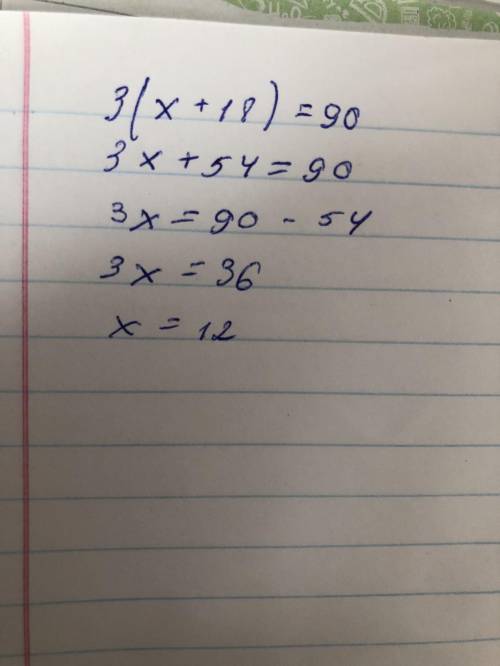 3(x + 18) = 90
3x + 54 = 90
3x = 90 - 54
3x = 36
x = 12